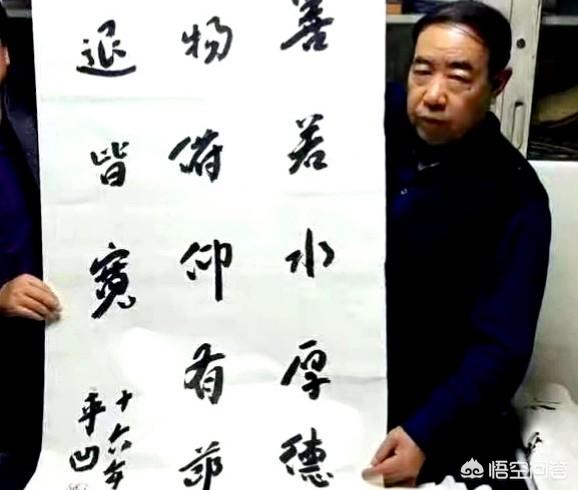 善若水厚德
物俯仰有
退皆寬
十六年
平凹
悟空问答